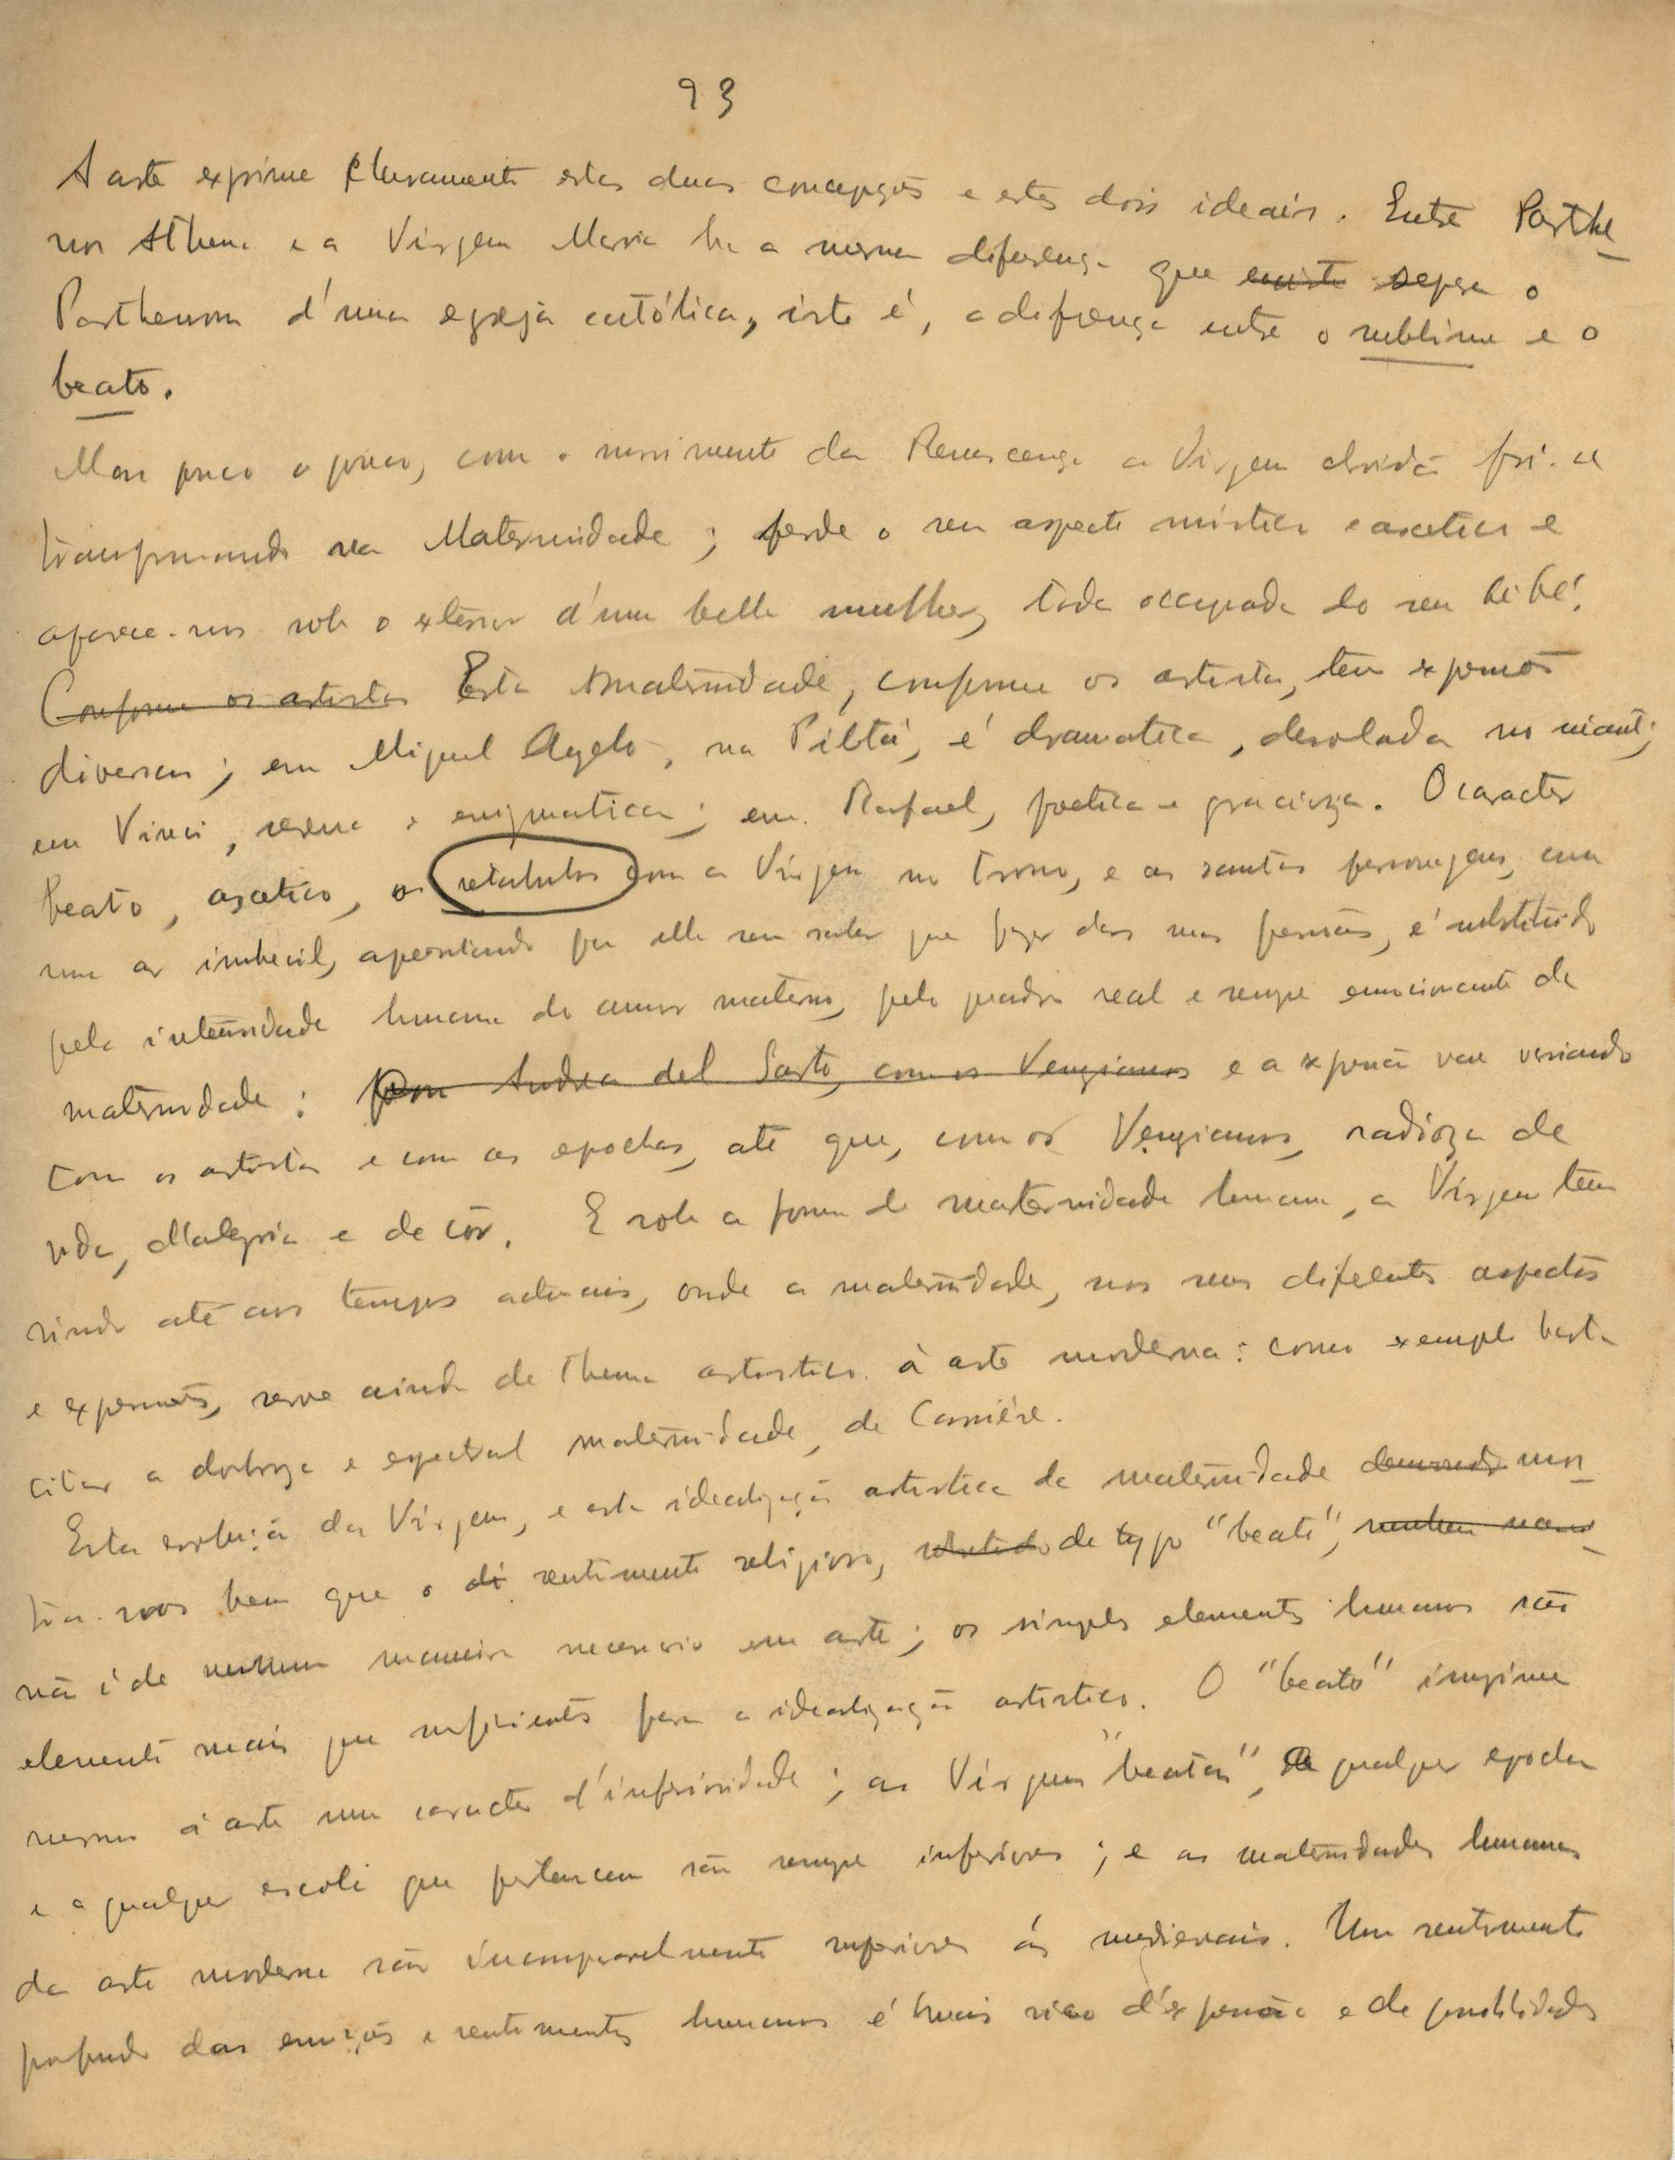 93
A arte exprime claramente estas duas concepções e estes dois ideais. Entre Parthe_
nos Athena e a Virgem Maria ha a mesma diferença que existe separa o
Parthenon d'uma egreja católica, isto é, a diferença entre o sublime e o
beato.
Mas pouco a pouco, com o movimento da Renascença a Virgem foi-se
transformando na Maternidade; perde o seu aspecto mistico e ascetico e
aparece-nos sob o exterior d'uma bella mulher, toda occupada do seu bébé.
Conforme os artistas Esta maternidade, conforme os artistas, tem expressões
diversas; em Miguel Angelo, na Piétá, é dramatica, desolada
em Vinci, serena e enigmatica; em Rafael, poetica e gracioza. O caracter
beato, ascetico, os retabulos com a Virgem no trono, e as santas personagens, com
um ar imbecil, apontando para ella sem saber que fazer das suas pessoas, é substituido
pela intensidade humana do amor materno, pelo quadro real e sempre emocionante da
maternidade: Com Andrea del Sarto, com os Venezianos e a expressão vae variando
com os artistas e com as epochas, até que, com os Venezianos, radioza de
vida, d'alegria e de côr. E sob a forma de maternidade humana, a Virgem tem
vindo até aos tempos actuais, onde a maternidade, nos seus diferentes aspectos
e expressões, serve ainda de thema artistico á arte moderna: como exemplo basta
citar a doloroza e espectral maternidade, de Carrière.
Esta evolução da Virgem, e esta idealização artistica da maternidade mos_
tra-nos bem que o sentimento religioso, de typo "beato",
não é de nenhum maneira necessario em arte; os simples elementos humanos são
elemento mais que suficiente para a idealização artistica. O "beato" imprime
mesmo á arte um caracter d'inferioridade; as Virgens "beatas", de qualquer epocha
e a qualquer escola que pertencem são sempre inferiores; e as maternidades humanas
da arte moderna são incomparavelmente superiores ás medievais. Um sentimento
profundo das emoções e sentimentos humanos é mais rico d'expressão e de possibilidades